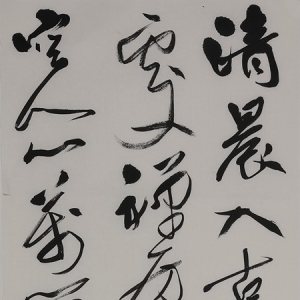 清晨入古
處禪房
空人心萬